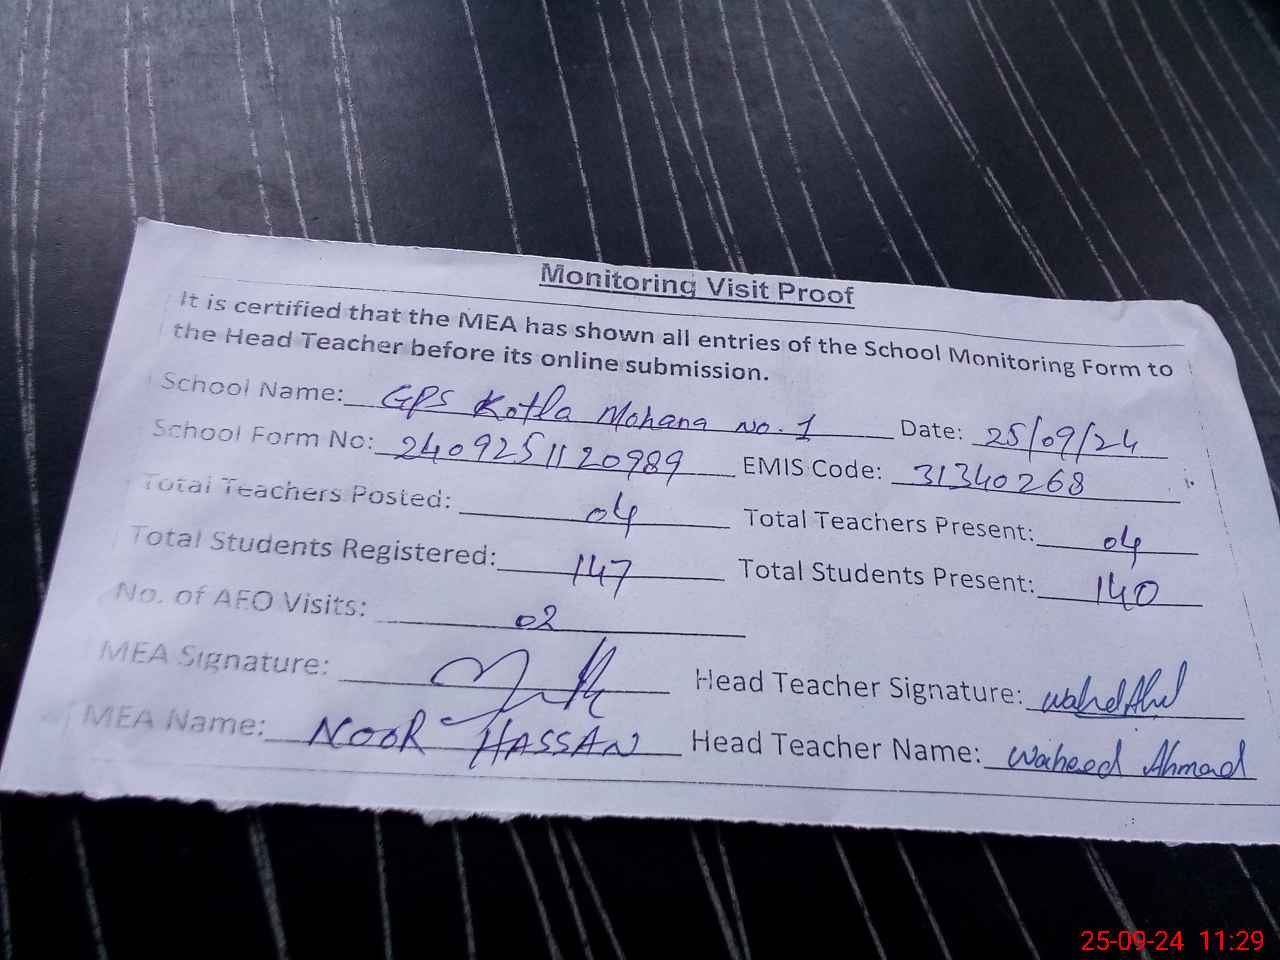 Monitoring Visit Proof
It is certified that the MEA has shown all entries of the School Monitoring Form to
the Head Teacher before its online submission.
School Name: GPS Kotla Mohana No. 1 Date: 25/09/24
School Form No: 2409251120989 EMIS Code: 31340268
Total Teachers Posted: 04 Total Teachers Present: 04
Total Students Registered: 147 Total Students Present: 140
No. of AEO Visits: 02
MEA Signature: Head Teacher Signature:
MEA Name: NOOR HASSAN Head Teacher Name: Waheed Ahmad
25-09-24 11:29